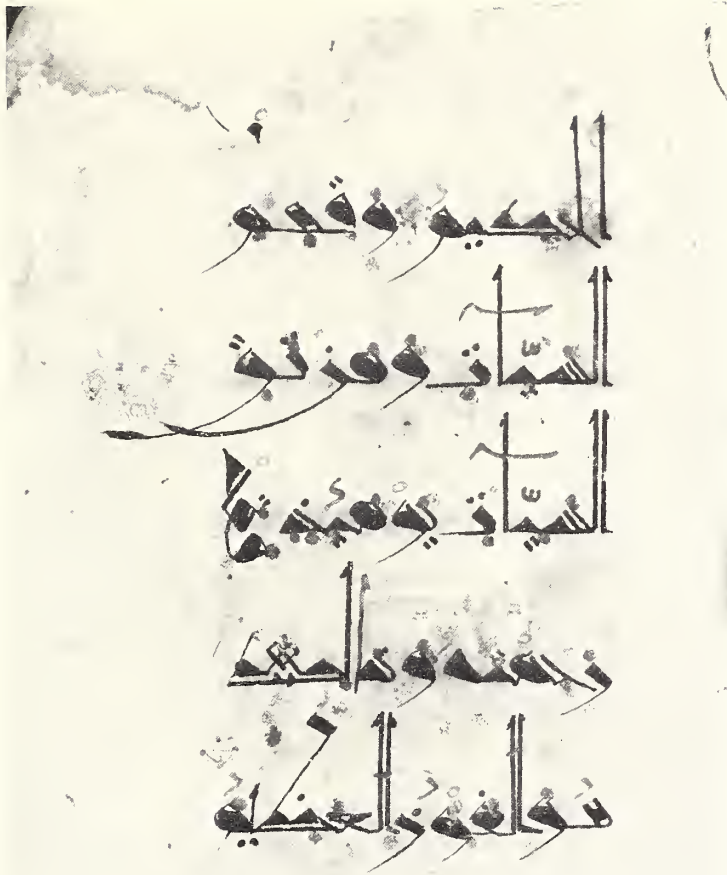 الحكيم وقهم
السيات ومن تق
السيات يومئذ فقد
رحمته وذلك
هو الفوز العظيم